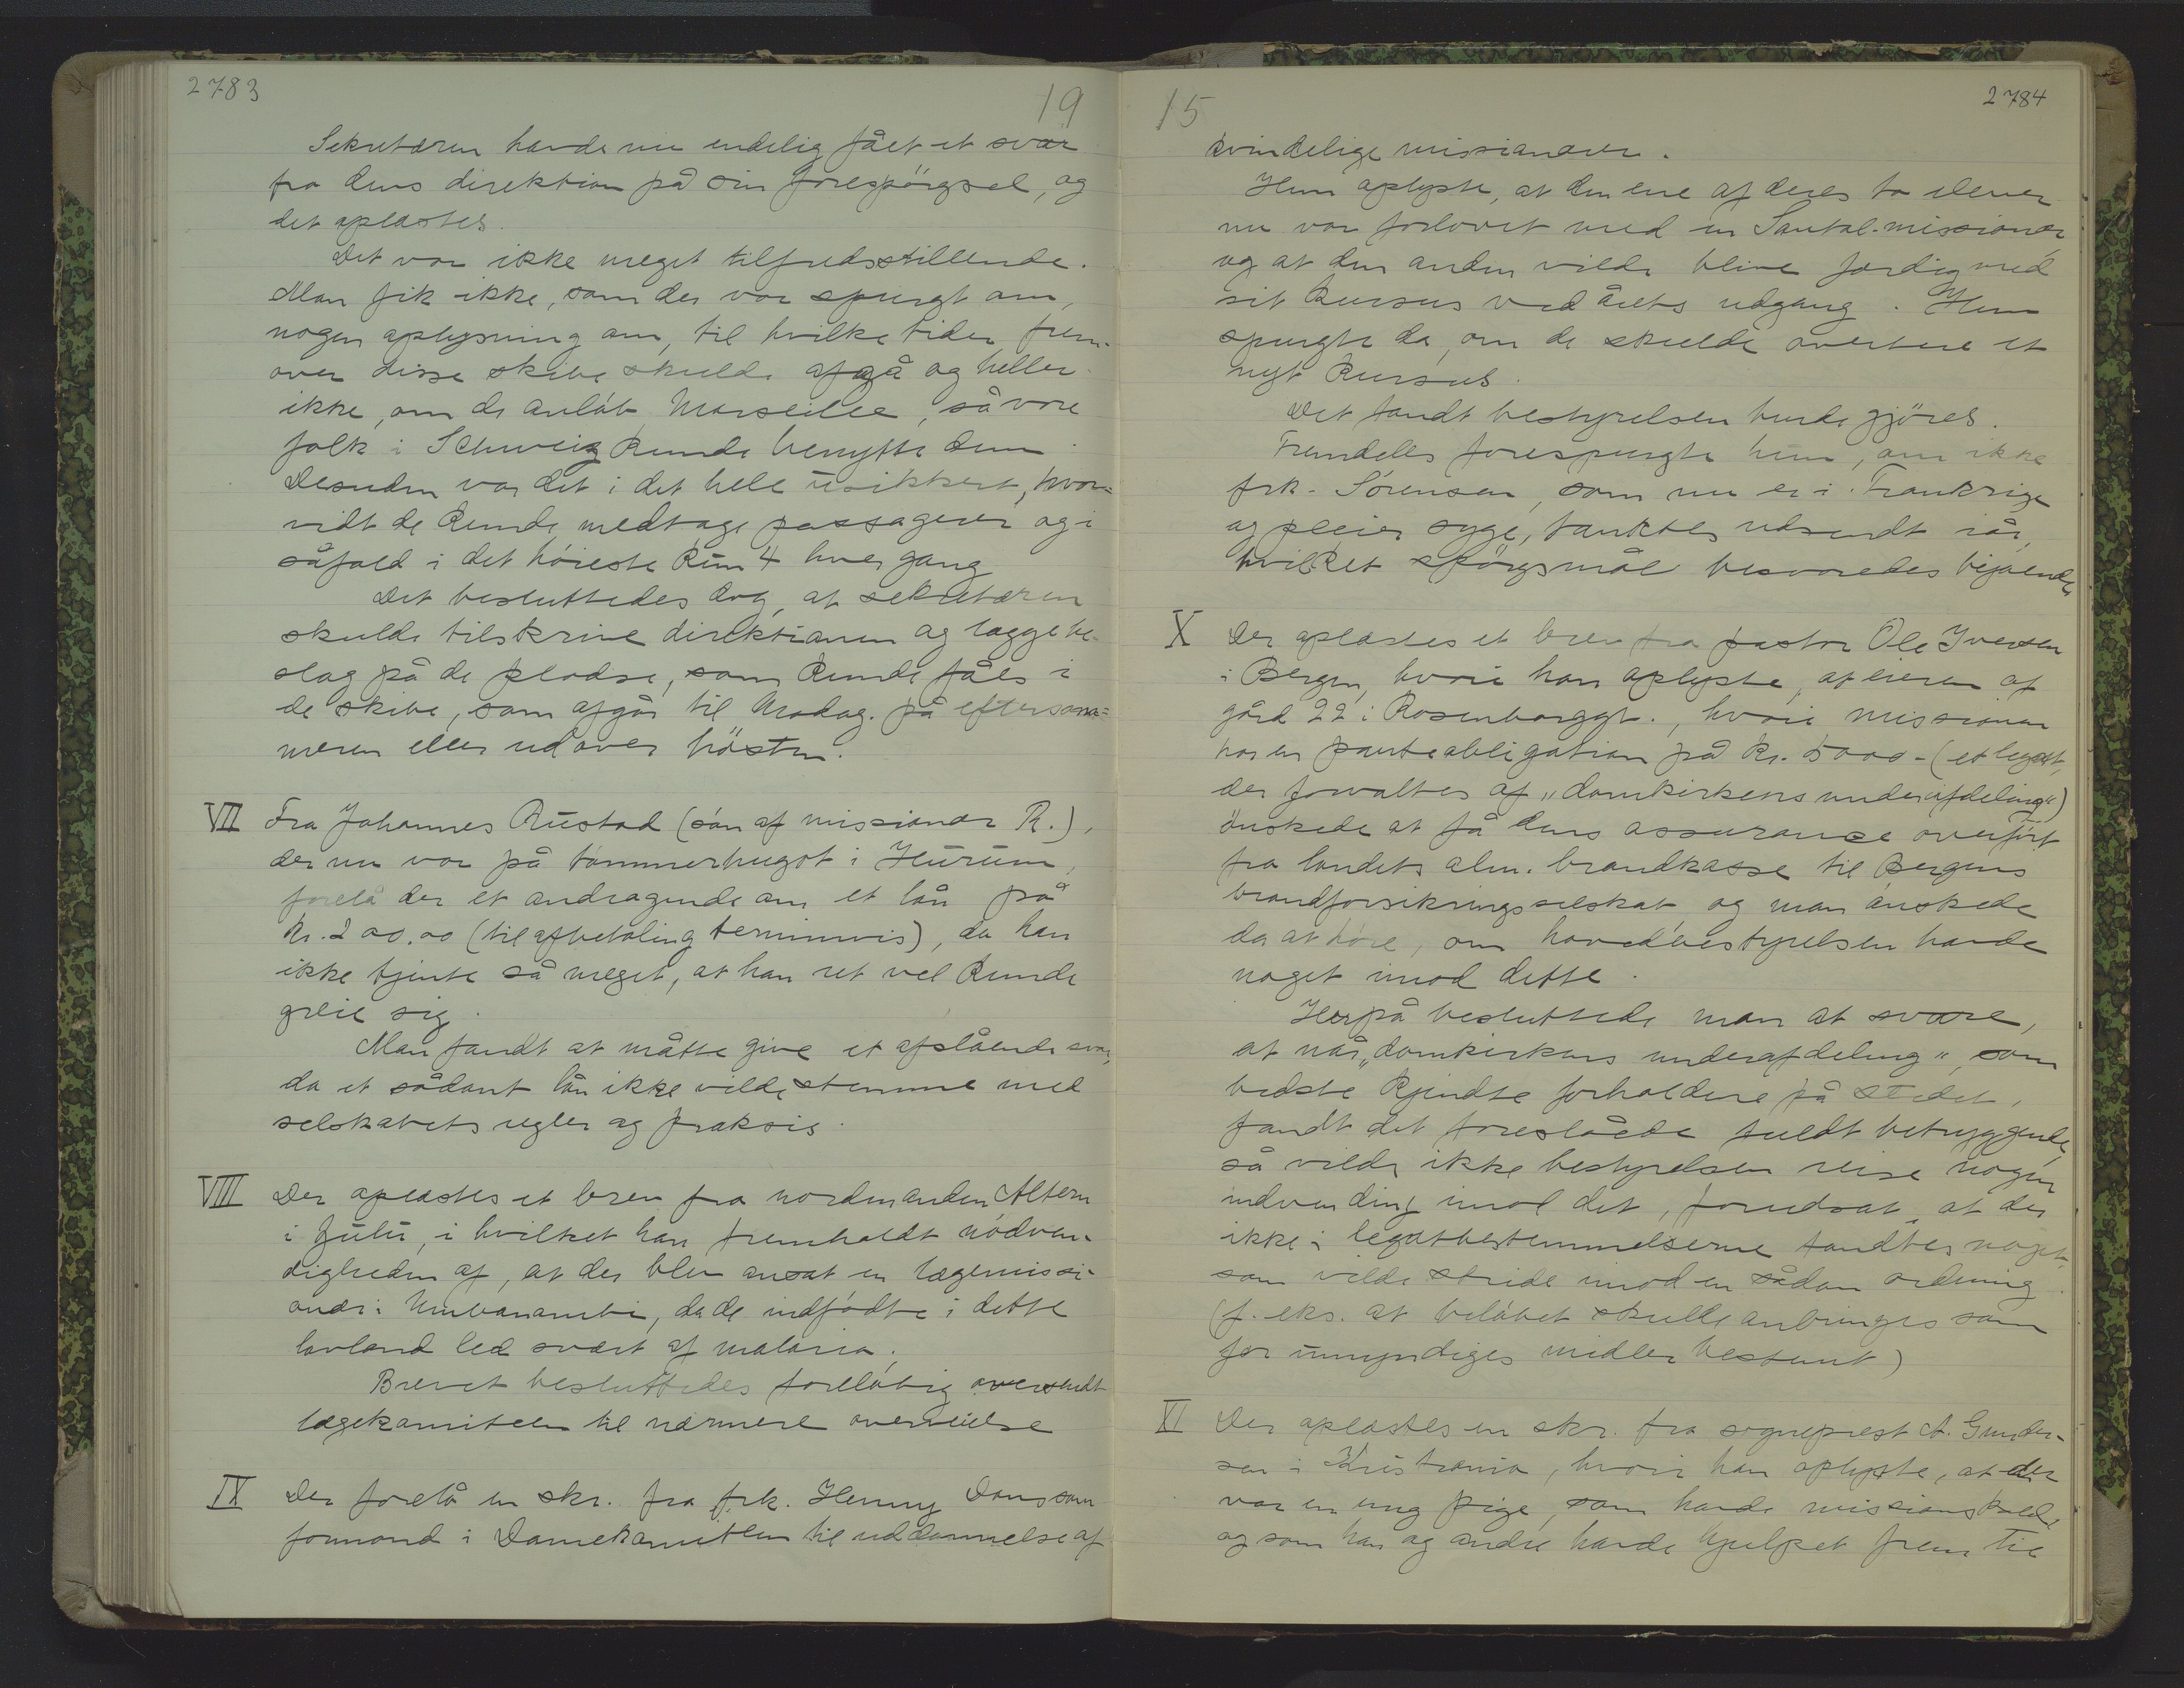 2783
19
Sekretæren havde nu endelig fået et svar
fra dens direktion på sin forespørgsel, og
det oplæstes.
Det var ikke meget tilfredsstillende.
Man fik ikke, som der var spurgt om,
nogen oplysning om, til hvilke tider frem-
over disse skibe skulde afgå og heller
ikke, om de anløb Marseille, så vore
folk i Schweiz kunde benytte dem.
Desuden var det i det hele usikkert, hvor-
vidt de kunde medtage passagerer og i
såfald i det høieste kun 4 hver gang
Det besluttedes dog, at sekretæren
skulde tilskrive direktionen og lægge be-
slag på de pladse, som kunde fåes i
de skibe, som afgår til Madag. på eftersom-
meren eller udover høsten.
VII Fra Johannes Rustad (søn af missionær R.),
der nu var på tømmerhugst i Hurum,
forelå der et andragende om et lån på
kr. 200,00 (til afbetaling terminvis), da han
ikke tjente så meget, at han ret vel kunde
greie sig.
Man fandt at måtte give et afslående svar,
da et sådant lån ikke vilde stemme med
selskabets regler og praksis.
VIII Der oplæstes et brev fra nordmanden Altern
i Zulu, i hvilket han fremholdt nødven-
digheden af, at der blev ansat en lægemissi-
onær i Umbonambi, da de indfødte i dette
lavland led svært af malaria.
Brevet besluttedes foreløbig oversendt
lægekomiteen til nærmere overveielse
IX Der forelå en skr. fra frk. Henny Dons som
formand i Damekomiteen til uddannelse af
15
2784
kvindelige missionærer.
Hun oplyste, at den ene af deres to elever
nu var forlovet med en Santal-missionær,
og at den anden vilde blive færdig med
sit kursus ved årets udgang. Hun
spurgte da, om de skulde avertere et
nyt kursus.
Det fandt bestyrelsen burde gjöres.
Fremdeles forespurgte hun, om ikke
frk. Sørensen, som nu er i Frankrige
og pleier syge, tænktes udsendt iår,
hvilket spörgsmål besvaredes bejaende
X Der oplæstes et brev fra pastor Ole Iversen
i Bergen, hvori han oplyste, at eieren af
gård 22 i Rosenborggt., hvori missionen
har en panteobligation på kr. 5000 - (et legat,
der forvaltes af "domkirkens underafdeling")
ønskede at få dens assurance overført
fra landets alm. brandkasse til Bergens
brandforsikringsselskab, og man ønskede
da at høre, om hovedbestyrelsen havde
noget imod dette.
Herpå besluttede man at svare,
at når "domkirkens underafdeling", som
bedste kjendte forholdene på stedet,
fandt det foreslåede fuldt betryggende,
så vilde ikke bestyrelsen reise nogen
indvending imod det, forudsat, at der
ikke i legatbestemmelserne fandtes noget,
som vilde stride imod en sådan ordning
(f. eks. at beløbet skulde anbringes som
for umyndiges midler bestemt)
XI Der oplæstes en skr. fra sogneprest A. Gunder-
sen i Kristiania, hvori han oplyste, at der
var en ung pige, som havde missionskald,
og som han og andre havde hjulpet frem til